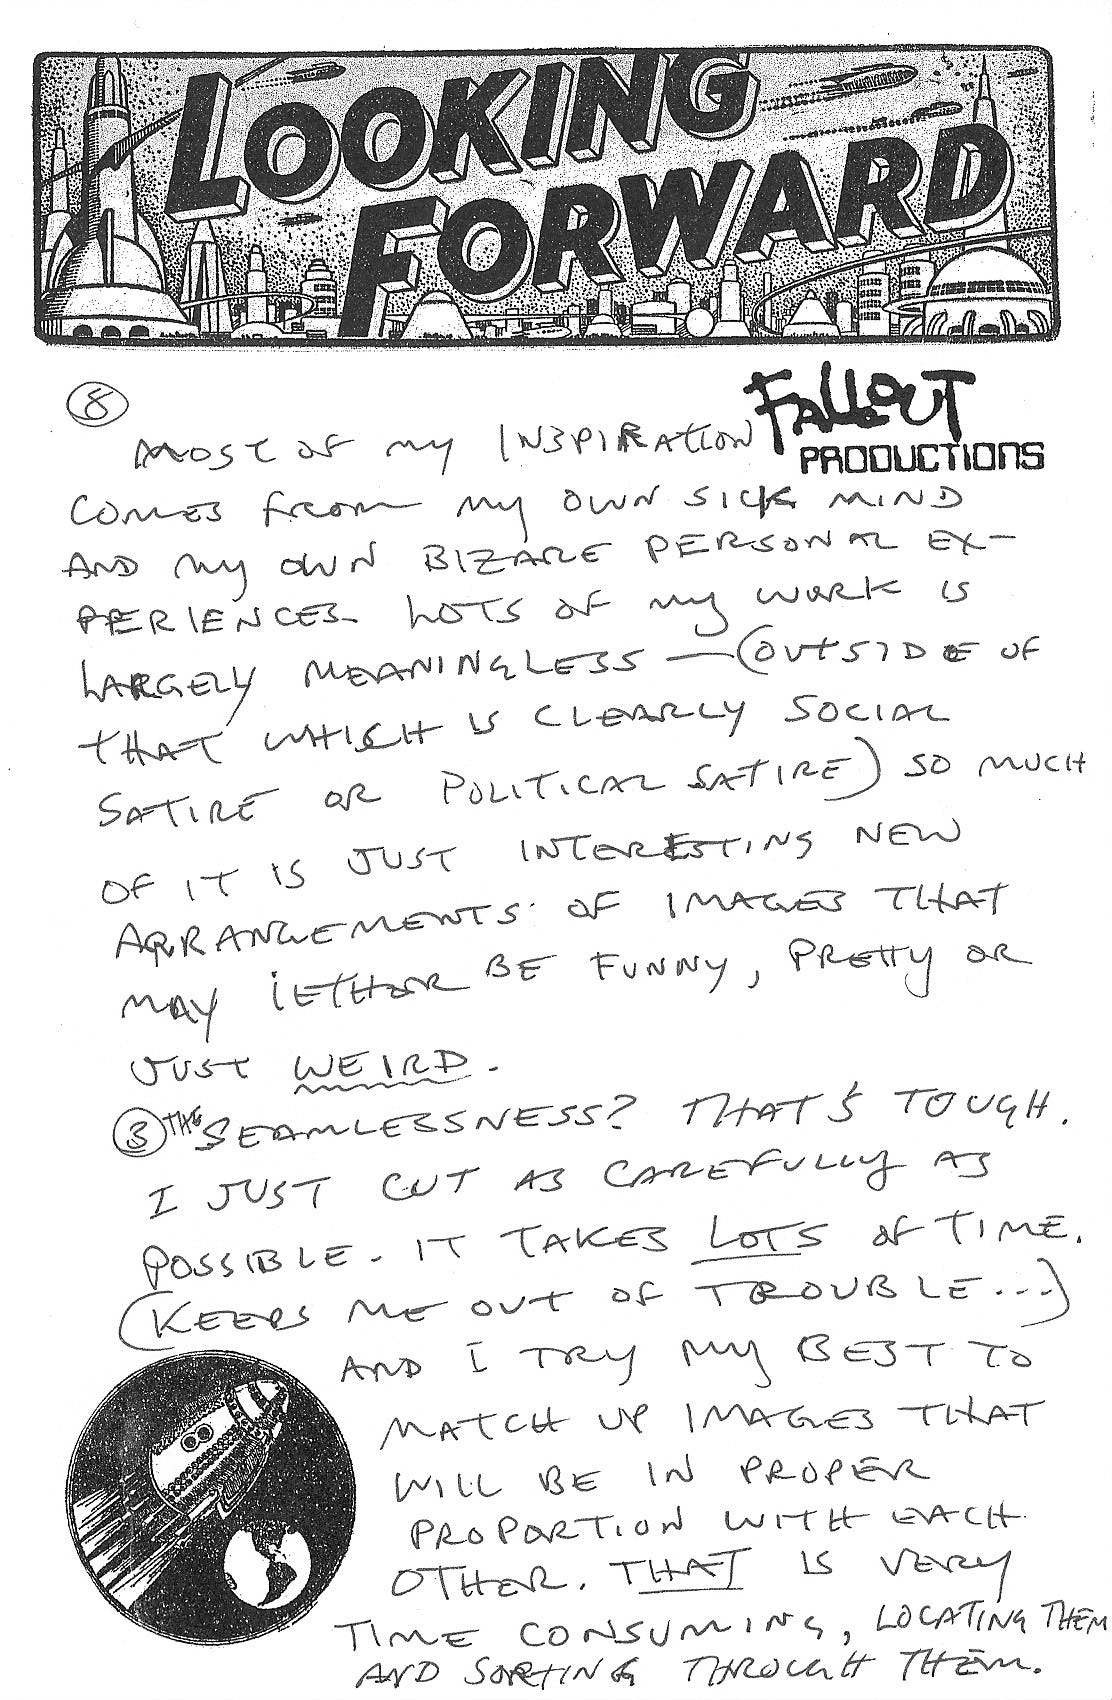 LOOKING
FORWARD
FALLOUT
PRODUCTIONS
8
MOST OF MY INSPIRATION
COMES FROM MY OWN SICK MIND
AND MY OWN BIZARE PERSONAL EX-
PERIENCES. LOTS OF MY WORK IS
LARGELY MEANINGLESS — (OUTSIDE OF
THAT WHICH IS CLEARLY SOCIAL
SATIRE OR POLITICAL SATIRE) SO MUCH
OF IT IS JUST INTERESTING NEW
ARRANGEMENTS OF IMAGES THAT
MAY IETHOR BE FUNNY, PRETTY OR
JUST WEIRD.
3 THE SEAMLESSNESS? THAT'S TOUGH.
I JUST CUT AS CAREFULLY AS
POSSIBLE. IT TAKES LOTS OF TIME.
(KEEPS ME OUT OF TROUBLE...)
AND I TRY MY BEST TO
MATCH UP IMAGES THAT
WILL BE IN PROPER
PROPORTION WITH EACH
OTHER. THAT IS VERY
TIME CONSUMING, LOCATING THEM
AND SORTING THROUGH THEM.